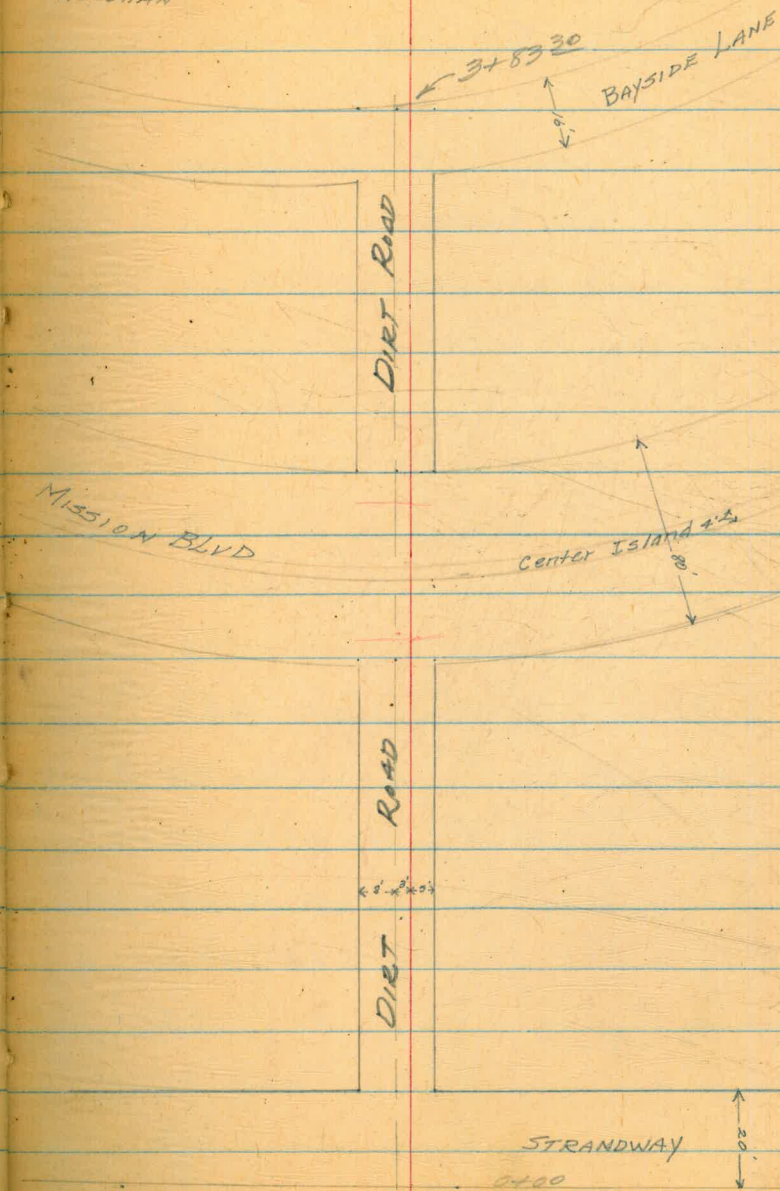 3+83 30
BAYSIDE LANE
16'
DIRT ROAD
MISSION BLVD
Center Island 4'
80'
DIRT ROAD
8' 3' 5'
STRANDWAY
20'
0+00